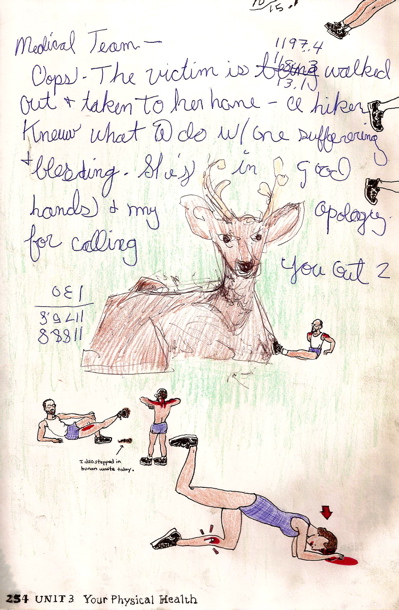 10/15.
Medical Team —
1197.4
Oops - The victim is being walked
13.15
out & taken to her home - a hiker
knew what to do w/ one suffering
& bleeding. She's in good
hands & my apology
for calling
you out 2
130
1178.8
1188.8
I also stepped in
human waste today.
254 UNIT 3 Your Physical Health